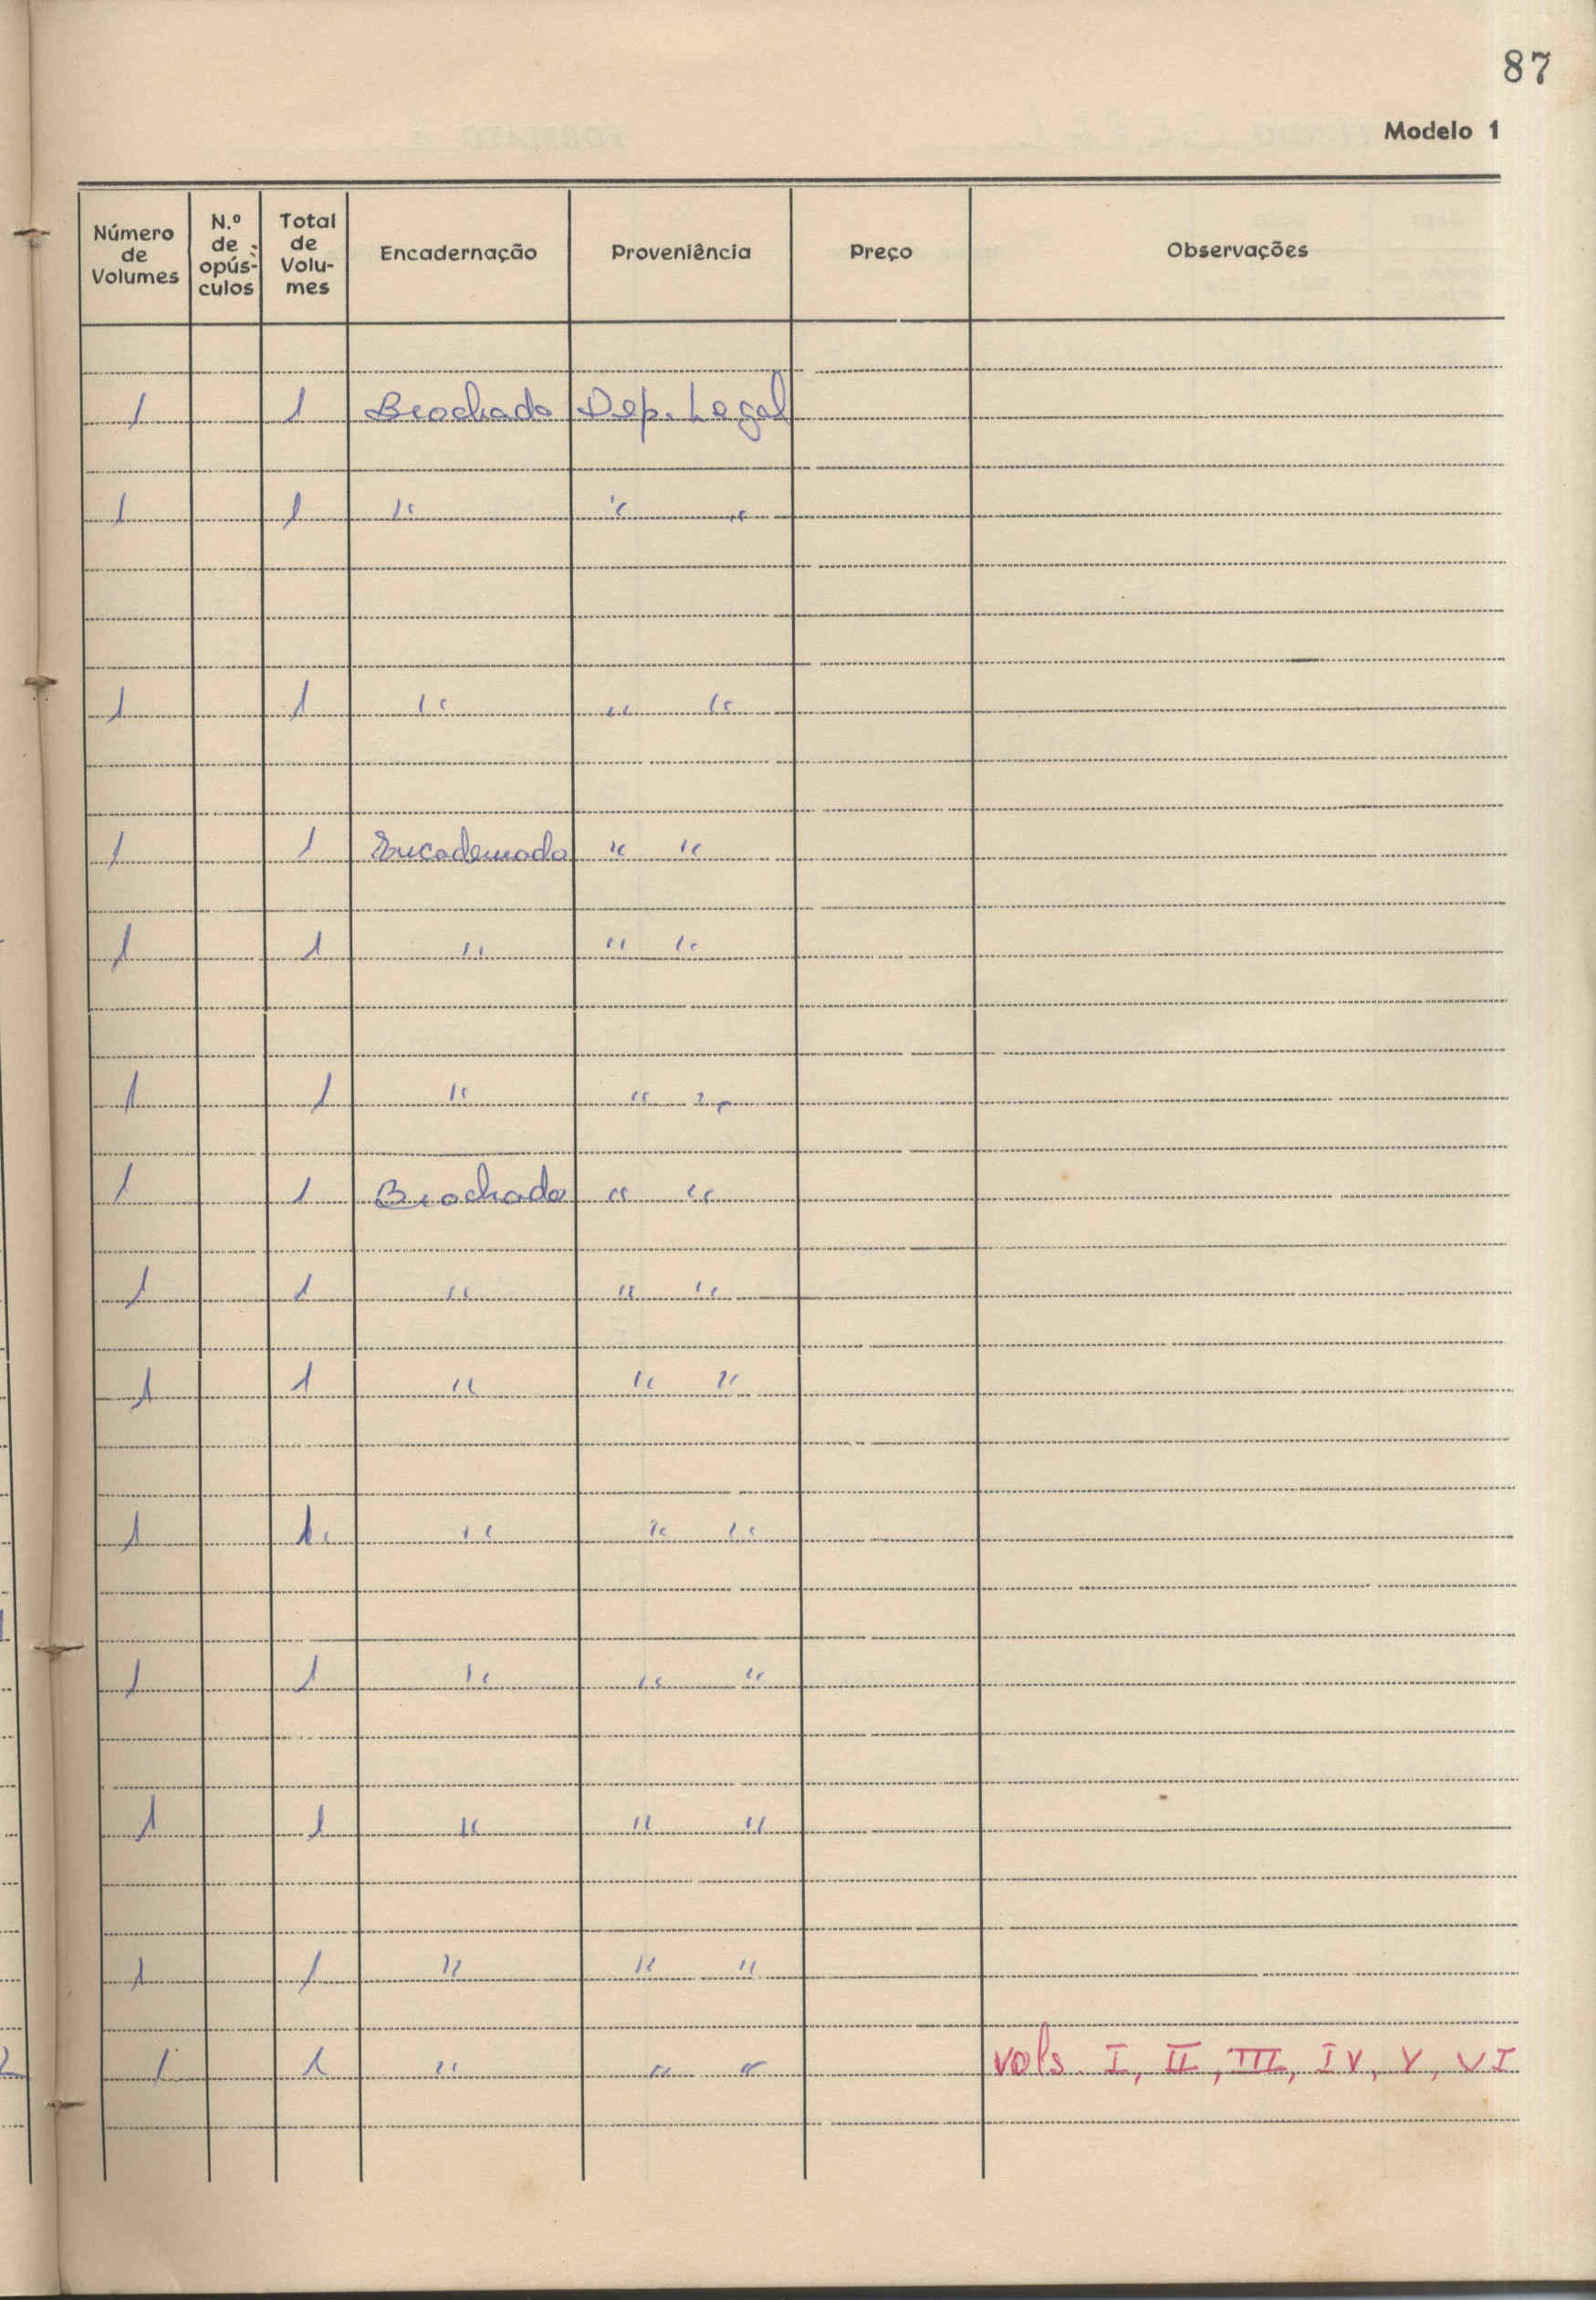 87
Modelo 1
Número de Volumes N.º de opús-culos Total de Volu-mes Encadernação Proveniência Preço Observações
1 1 Brochado Dep. Legal
1 1 " " "
1 1 " " "
1 1 Encadernado " "
1 1 " " "
1 1 " " "
1 1 Brochado " "
1 1 " " "
1 1 " " "
1 1 " " "
1 1 " " "
1 1 " " "
1 1 " " "
1 1 " " " vols. I, II, III, IV, V, VI